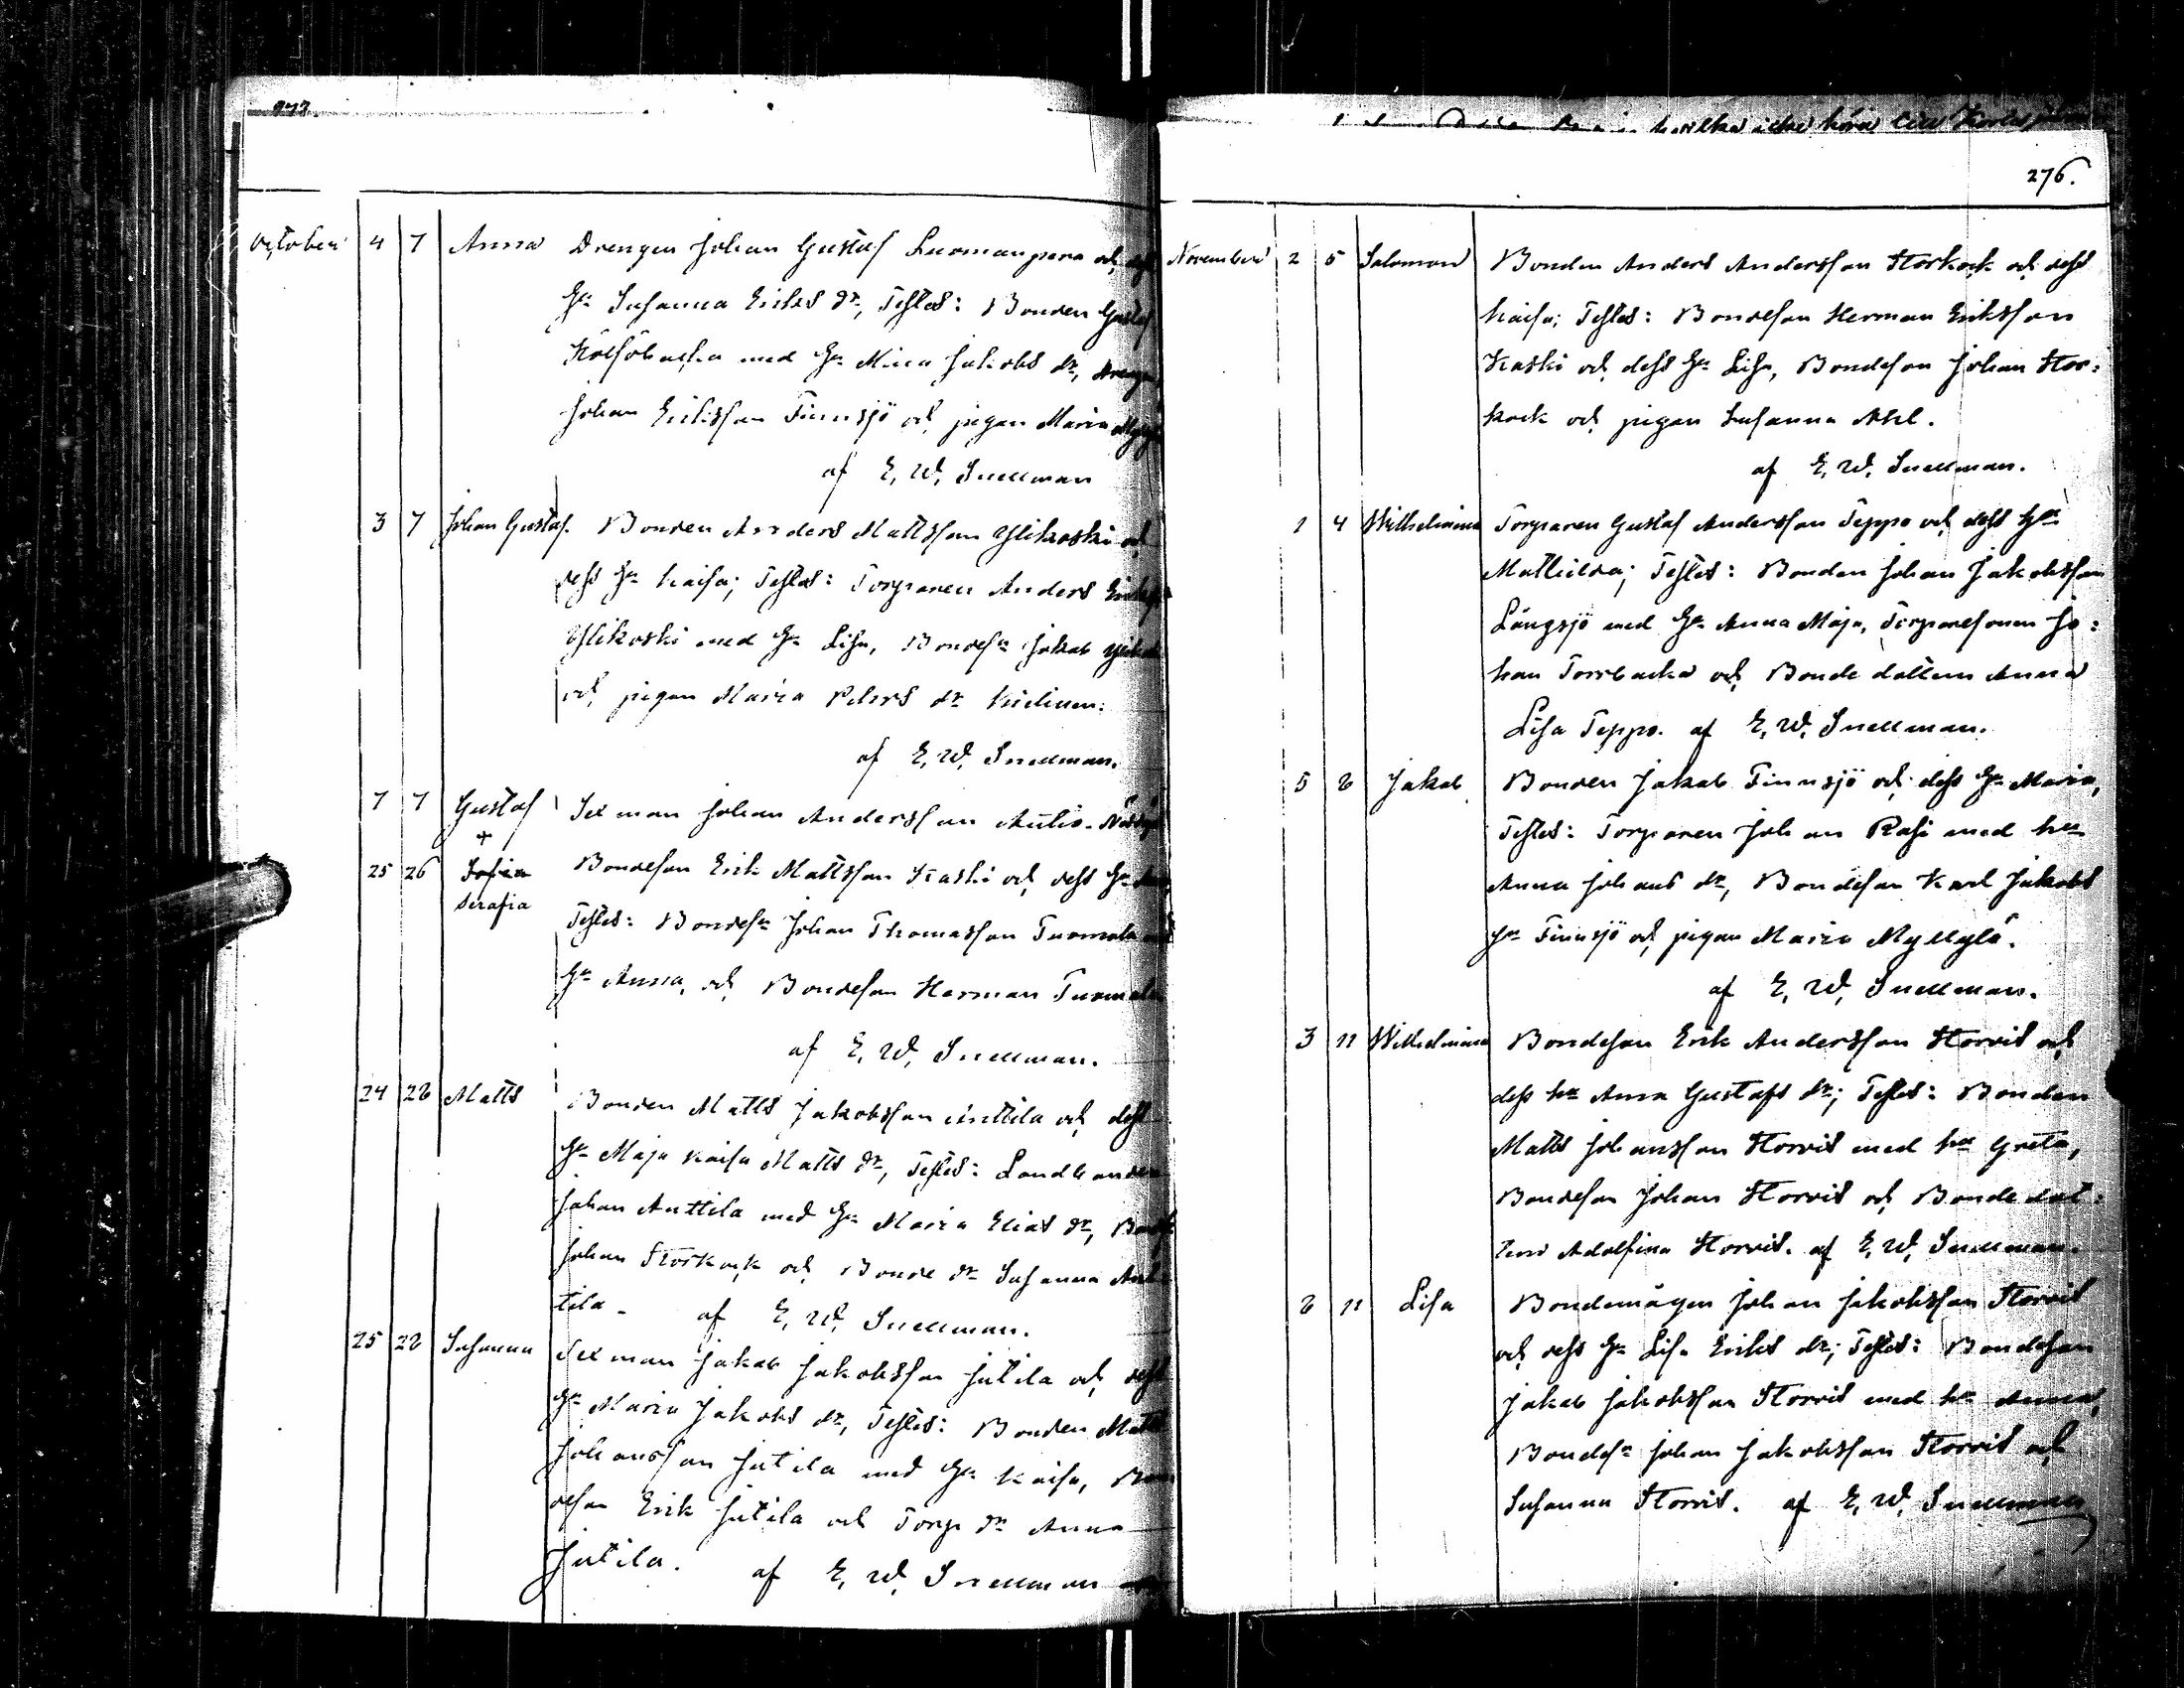 October 4 7 Anna Drengen Johan Gustaf Luomanpera och
Hu Susanna Eriks dr, Testes: Bonden Gustaf
med Hu Mina Jakobs dr, Dreng
Johan Eriksson Finnsjö och pigan Maria
af E. W. Snellman
3 7 Johan Gustaf. Bonden Anders Mattsson Ylikoski och
dess Hu Kaisa; Testes: Torparen Anders
Ylikoski med Hu Lisa, Bondesn Jakob
och pigan Maria Peters dr
af E. W. Snellman.
7 7 Gustaf Sexman Johan Andersson Aulis.
+
25 26 Sofia Bondeson Erik Mattsson Kaski och dess Hu
Serafia
Testes: Bondesn Johan Thomasson Tuomala
Hu Anna, och Bondeson Herman Tuomala
af E. W. Snellman.
24 28 Matts Bonden Matts Jakobsson Anttila och dess
Hu Maja Kaisa Matts dr, Testes: Landbonden
Johan Anttila med Hu Maria Elias dr,
Johan Storkock och Bonde dr Susanna Ant
tila - af E. W. Snellman.
25 28 Susanna Sexman Jakob Jakobsson Jutila och dess
Hu Maria Jakobs dr, Testes: Bonden Matts
Johansson Jutila med Hu Kaisa, Bon
deson Erik Jutila och Torp dr Anna
Jutila. af E. W. Snellman
hvilka icke höra till
276.
November 2 5 Salomon Bonden Anders Andersson Storkock och dess
Kaisa; Testes: Bondeson Herman Eriksson
Kaski och dess Hu Lisa, Bondeson Johan Stor:
kock och pigan Susanna Ahl.
af E. W. Snellman.
1 4 Wilhelmina Torparen Gustaf Andersson Teppo och dess Hu
Mathilda; Testes: Bonden Johan Jakobsson
Långsjö med Hu Anna Maja, Torparesonen Jo:
han Torrbacka och Bonde dottern Anna
Lisa Teppo. af E. W. Snellman.
5 8 Jakob Bonden Jakob Finnsjö och dess Hu Maria,
Testes: Torparen Johan Rasi med hu
Anna Johans dr, Bondeson Karl Jakobs
sn Finnsjö och pigan Maria Myllylä.
af E. W. Snellman.
3 11 Wilhelmina Bondeson Erik Andersson Storvis och
dess hu Anna Gustafs dr; Testes: Bonden
Matts Johansson Storvis med hu Greta,
Bondeson Johan Storvis och Bonde dot:
tern Adolfina Storvis. af E. W. Snellman.
8 11 Lisa Bondemågen Johan Jakobsson Storvis
och dess Hu Lisa Eriks dr; Testes: Bondeson
Jakob Jakobsson Storvis med hu Anna,
Bondesn Johan Jakobsson Storvis och
Susanna Storvis. af E. W. Snellman